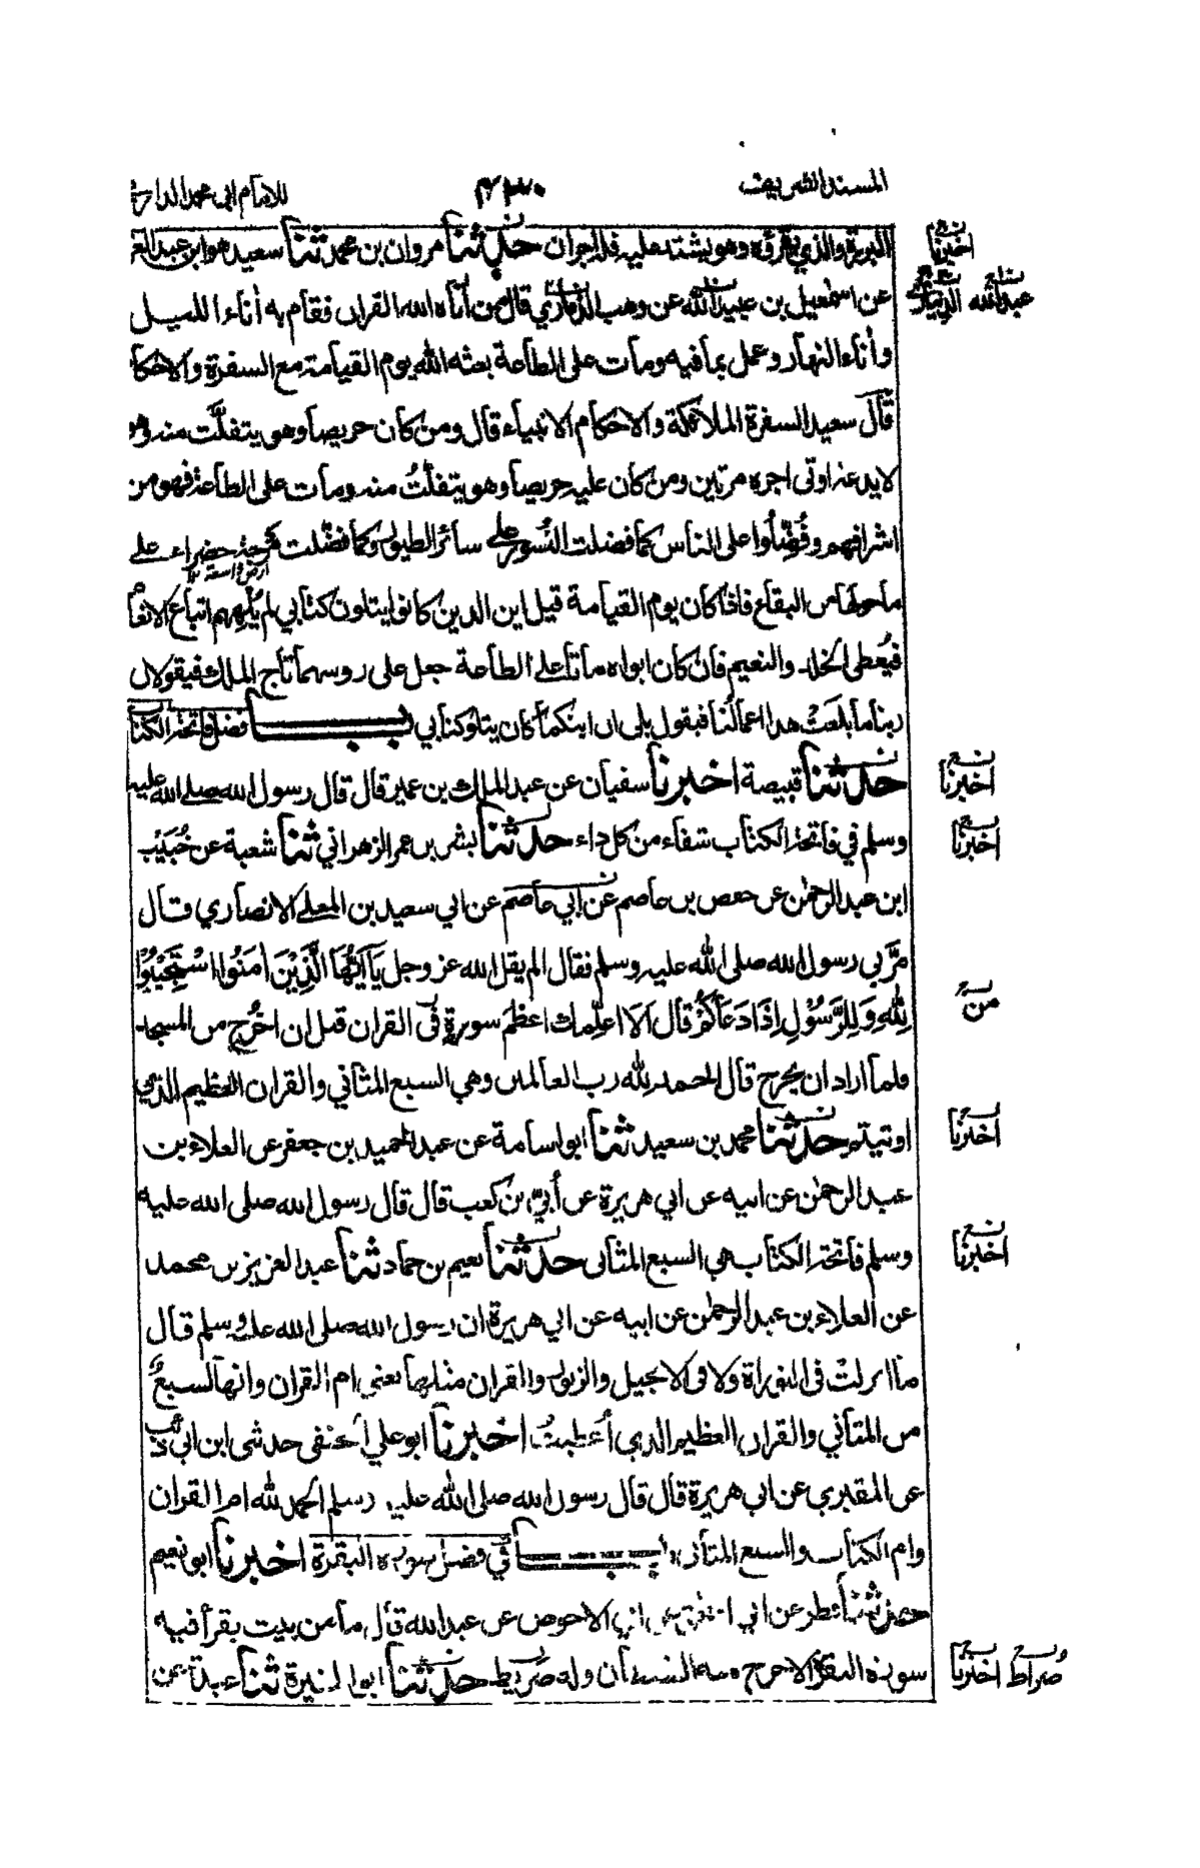 المسند الشريف ٤٣٠ للامام ابى محمد الدارمي
البررة والذي يقرؤه وهو يشتد عليه فله اجران حدثنا مروان بن محمد ثنا سعيد هو ابن عبد العز
اخبرنا
عن اسمعيل بن عبيد الله عن وهب الذماري قال من آتاه الله القران فقام به أناء الليل
عبد الله
وأناء النهار وعمل بما فيه ومات على الطاعة بعثه الله يوم القيامة مع السفرة والاحكا
قال سعيد السفرة الملائكة والاحكام الانبياء قال ومن كان حريصا وهو يتفلت منه وهو
لا يدعه اوتى اجره مرتين ومن كان عليه حريصا وهو يتفلت منه ومات على الطاعة فهو من
اشرافهم وفضلوا على الناس كما فضلت النسور على سائر الطيور وكما فضلت مرجة خضراء على
ارض واسعة ١٢
ما حولها من البقاع فاذا كان يوم القيامة قيل اين الذين كانوا يتلون كتابي لم يلههم اتباع الانعا
فيعطى الخلد والنعيم فان كان ابواه ماتا على الطاعة جعل على روسهما تاج الملك فيقولان
ربنا ما بلغت هذا اعمالنا فيقول بلى ان ابنكما كان يتلو كتابي باب فضل فاتحة الكتاب
حدثنا قبيصة اخبرنا سفيان عن عبد الملك بن عمير قال قال رسول الله صلى الله عليه
اخبرنا
وسلم في فاتحة الكتاب شفاء من كل داء حدثنا بشر بن عمر الزهراني ثنا شعبة عن خبيب
اخبرنا
ابن عبد الرحمن عن حفص بن عاصم عن ابي عاصم عن ابي سعيد بن المعلى الانصاري قال
مر بي رسول الله صلى الله عليه وسلم فقال الم يقل الله عز وجل يَا أَيُّهَا الَّذِيْنَ اٰمَنُوا اسْتَجِيْبُوْا
لِلّٰهِ وَلِلرَّسُوْلِ اِذَا دَعَاكُمْ قال الا اعلمك اعظم سورة في القران قبل ان اخرج من المسجد
من
فلما اراد ان يخرج قال الحمد لله رب العالمين وهي السبع المثاني والقران العظيم الذي
اوتيتم حدثنا محمد بن سعيد ثنا ابو اسامة عن عبد الحميد بن جعفر عن العلاء بن
اخبرنا
عبد الرحمن عن ابيه عن ابي هريرة عن أبي بن كعب قال قال رسول الله صلى الله عليه
وسلم فاتحة الكتاب هي السبع المثاني حدثنا نعيم بن حماد ثنا عبد العزيز بن محمد
اخبرنا
عن العلاء بن عبد الرحمن عن ابيه عن ابي هريرة ان رسول الله صلى الله عليه وسلم قال
ما انزلت في التوراة ولا في الانجيل والزبور والقران مثلها يعني ام القران وانها لسبع
من المثاني والقران العظيم الذي أعطيت اخبرنا ابو علي الحنفي حدثنى ابن ابي ذئب
عن المقبري عن ابي هريرة قال قال رسول الله صلى الله عليه وسلم الحمد لله ام القران
وام الكتاب والسبع المثاني باب في فضل سورة البقرة اخبرنا ابو نعيم
حدثنا فطر عن ابي اسحق عن ابي الاحوص عن عبد الله قال ما من بيت يقرأ فيه
سورة البقرة الا خرج منه الشيطان وله ضريط حدثنا ابو المغيرة ثنا عبدة عن
ضراط اخبرنا